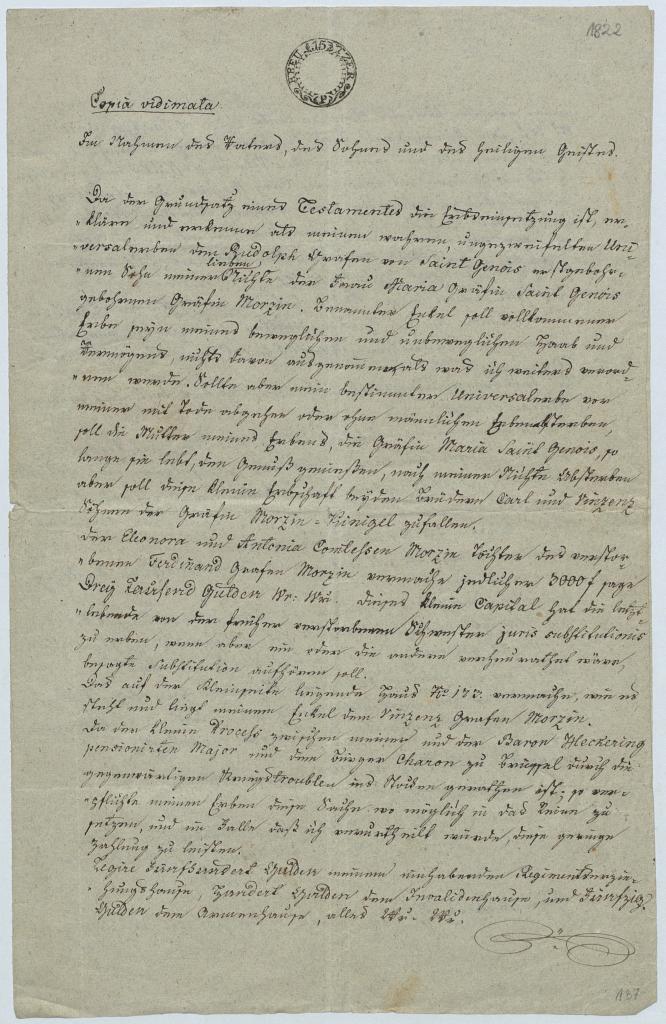 1822
KREUTZER
Copia vidimata.
Im Nahmen des Vaters, des Sohnes und des heiligen Geistes.
Da der Grundsatz eines Testamentes die Erbseinsetzung ist, er-
"kläre und erkenne als meinen wahren, ungezweifelten Uni-
"versalerben den Rudolph Grafen von Saint Genois erstgebohr-
"nen Sohn meiner lieben Nichte der Frau Maria Gräfin Saint Genois
gebohrnen Gräfin Morzin. Benannter Enkel soll vollkommener
Erbe seyn meines beweglichen und unbeweglichen Haab und
Vermögens, nichts davon ausgenommen, als was ich weiters verord-
"nen werde. Sollte aber mein bestimmter Universalerbe vor
meiner mit Tode abgehen oder ohne männlichen Erben sterben,
soll die Mutter meines Erbens, die Gräfin Maria Saint Genois, so
lange sie lebt, den Genuß genießen, nach meiner Nichte Absterben
aber soll diese kleine Erbschaft beyden Brüdern Carl und Vinzenz
Söhnen der Gräfin Morzin - Kinigel zufallen.
Der Eleonora und Antonia Comtessen Morzin Töchter des verstor-
"benen Ferdinand Grafen Morzin vermache jedlicher 3000 f sage
Dreÿ Tausend Gulden Wr: Wr. Dieses kleine Capital hat die letzt-
"lebende von der früher verstorbenen Schwester juris substitutionis
zu erben, wenn aber ein oder die andere verheurathet wäre,
besagte Substitution aufhören soll.
Das auf der Kleinseite liegende Haus No 173. vermache, wie es
steht und liegt meinem Enkel dem Vinzenz Grafen Morzin.
Da der kleine Process zwischen meiner und der Baron Heckering
pensionirten Major und dem Bürger Charon zu Brüssel durch die
gegenwärtigen Kriegstroublen ins Stocken gerathen ist; so ver-
"pflichte meinen Erben diese Sache wo möglich in das Reine zu
setzen, und im Falle daß ich verurtheilt würde, diese geringe
Zahlung zu leisten.
Legire Fünfhundert Gulden meinem inhabenden Regimentserzie-
"hungshause Hundert Gulden dem Invalidenhause, und Fünfzig
Gulden dem Armenhause, alles Wr. Wr.
137